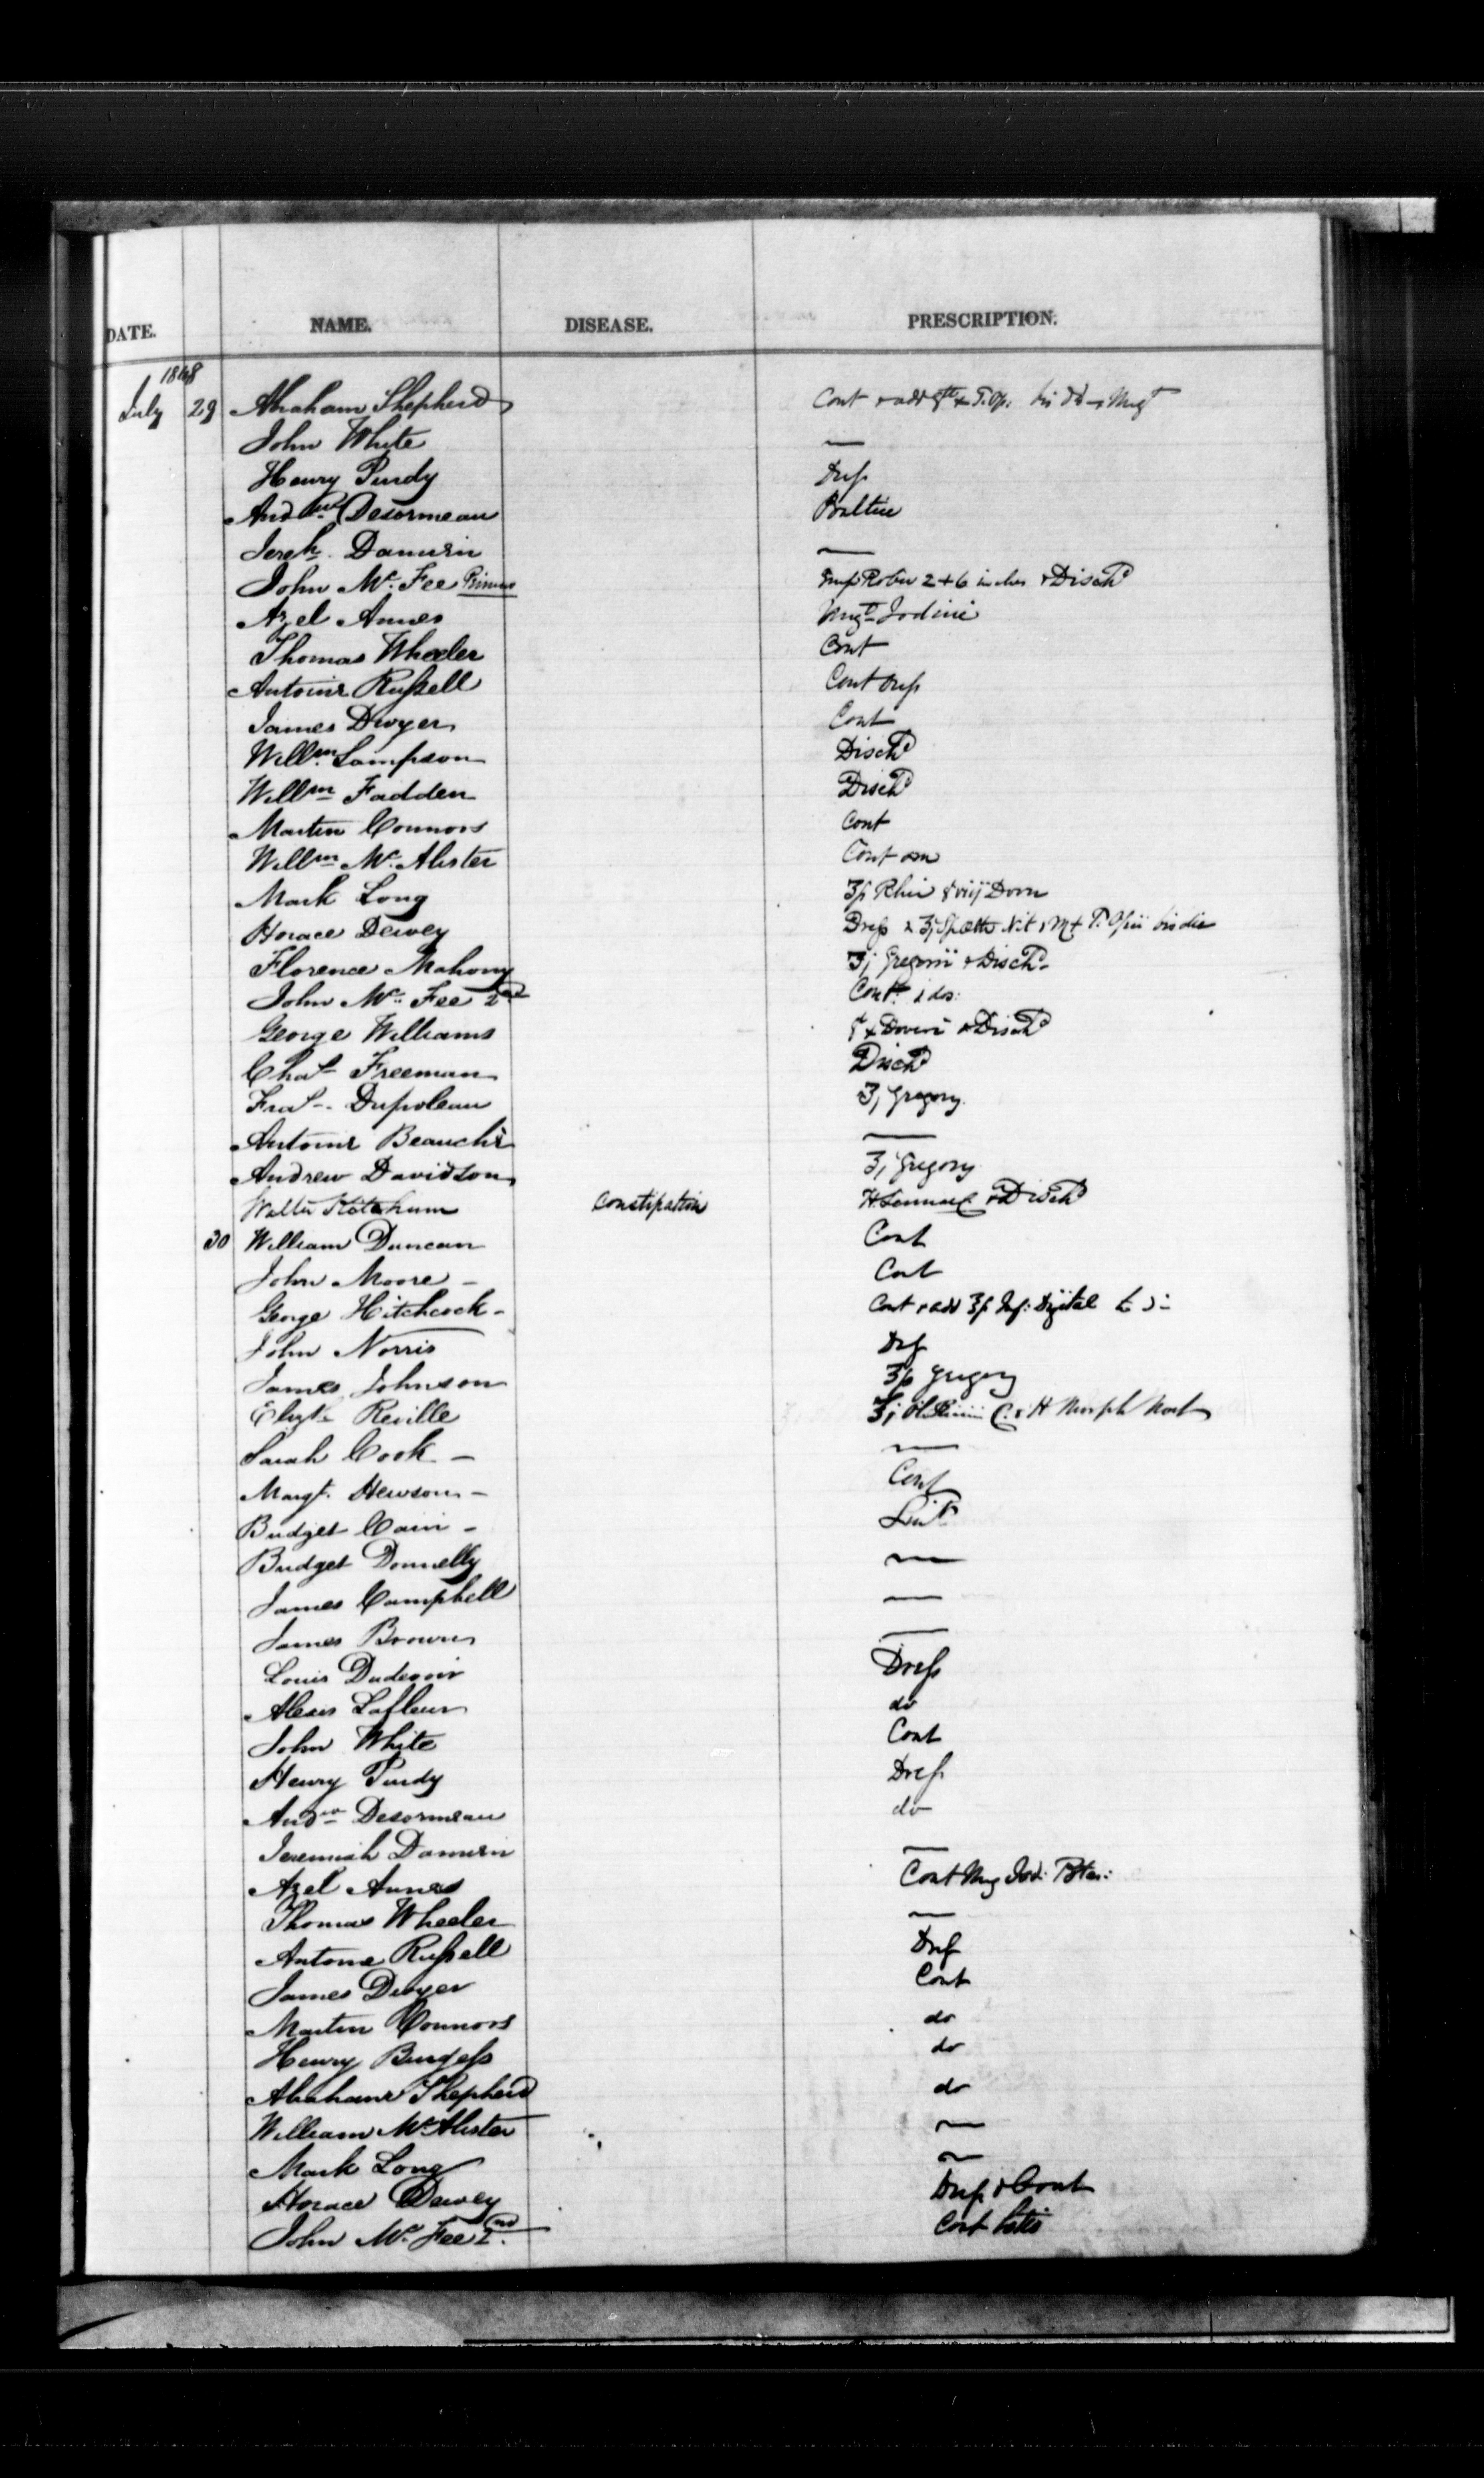 DATE. NAME. DISEASE. PRESCRIPTION.
1848
July 29 Abraham Shepherd Cont & add T. Op: bis
John White —
Henry Purdy Dress
Andrw Desormeau Poultice
Jereh. Damurin —
John Mc. Fee Primus Emp: Rober 2 + 6 inches & Dischd
Azel Annes Ungt Iodine
Thomas Wheeler Cont
Antoine Russell Cont Dress
James Dwyer Cont
Willm. Sampson Dischd
Willm Fadden Dischd
Martin Connors Cont
Willm Mc. Alister Cont
Mark Long ʒſs Rhei
Horace Dewey Dress & ʒj Sp Æth Nit T. Opii bis die
Florence Mahony ʒj Gregorii & Dischd
John Mc. Fee 2nd Cont.
George Williams x Doveri & Dischd
Chas Freeman Dischd
Fras. Dupoleau ʒj Gregory
Antoine Beauchi —
Andrew Davidson ʒj Gregory
Walter Ketchum Constipation & Dischd
30 William Duncan Cont
John Moore – Cont
George Hitchcock – Cont & add ʒſs Inf: Digital
John Norris Dress
James Johnson ʒſs Gregory
Elizth Reville ʒj Ol Ricini & H Morph Noct
Sarah Cook – —
Margt. Hewson – Cont
Bridget Cain – Lint
Bridget Donnelly —
James Campbell —
James Brown —
Louis Dudevoir Dress
Alexis Lafleur do
John White Cont
Henry Purdy Dress
Andw Desormeau do
Jeremiah Damurin —
Azel Annes Cont Ung Iod: Potas:
Thomas Wheeler —
Antoine Russell Dress
James Dwyer Cont
Martin Connors do
Henry Burgess do
Abraham Shepherd do
William Mc. Alister —
Mark Long —
Horace Dewey Dress & Cont
John Mc. Fee 2nd. Cont